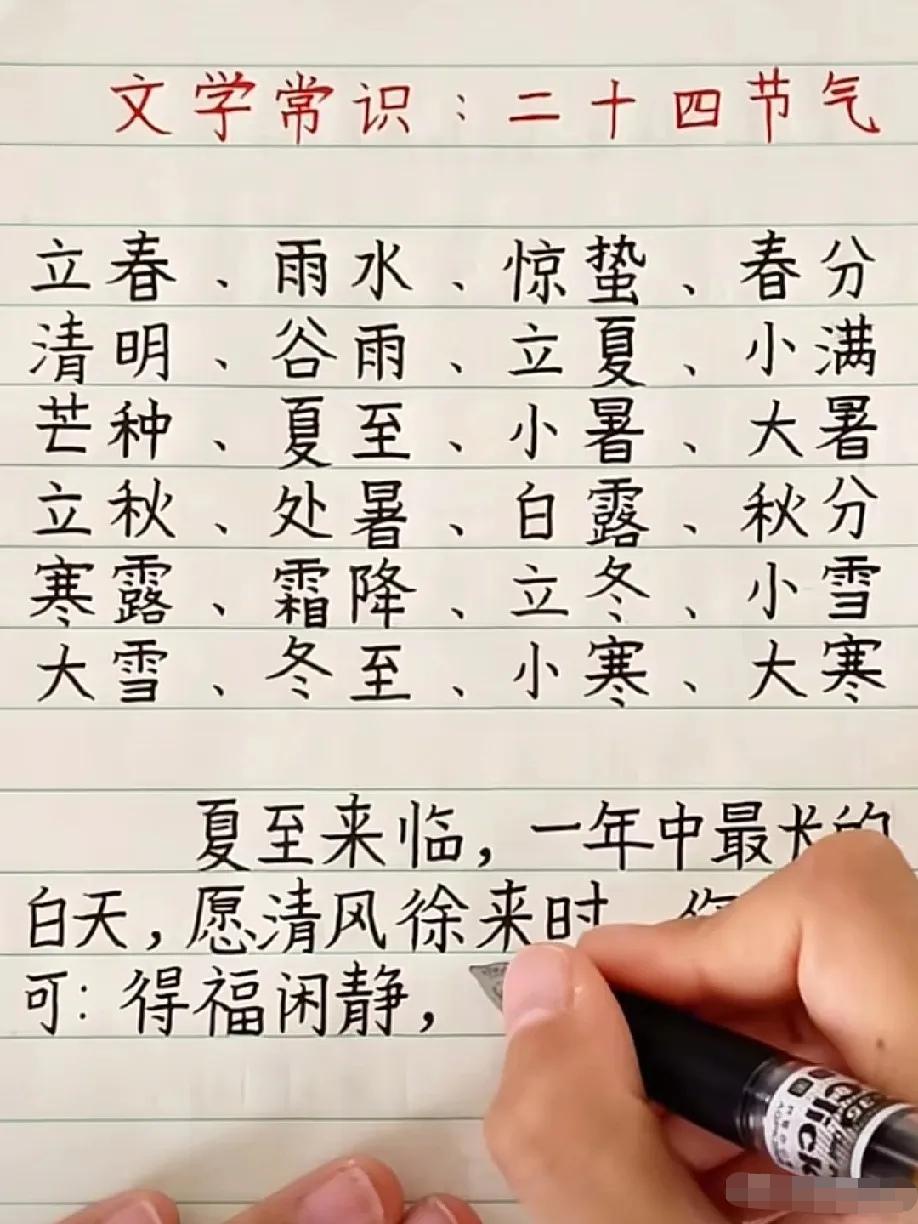 文学常识：二十四节气
立春、雨水、惊蛰、春分
清明、谷雨、立夏、小满
芒种、夏至、小暑、大暑
立秋、处暑、白露、秋分
寒露、霜降、立冬、小雪
大雪、冬至、小寒、大寒
夏至来临，一年中最长的
白天，愿清风徐来时
可：得福闲静，
Click